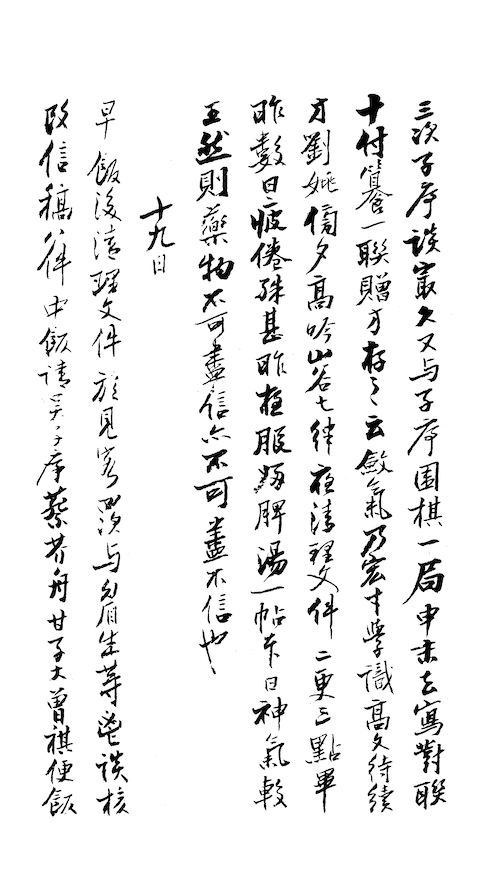 三次子序談最久又与子序围棋一局申末去寫對聯
十付纂一聯贈方存之云斂氣乃宏才學識高文待續
方劉姚傍夕高吟山谷七律夜清理文件二更三點畢
昨數日疲倦殊甚昨夜服歸脾湯一帖本日神氣較
王然則藥物不可盡信亦不可盡不信也
十九日
早飯後清理文件旋見客四次与眉生等鬯談核
改信稿八件中飯請吴子序蔡芥舟甘子大曾祺便飯